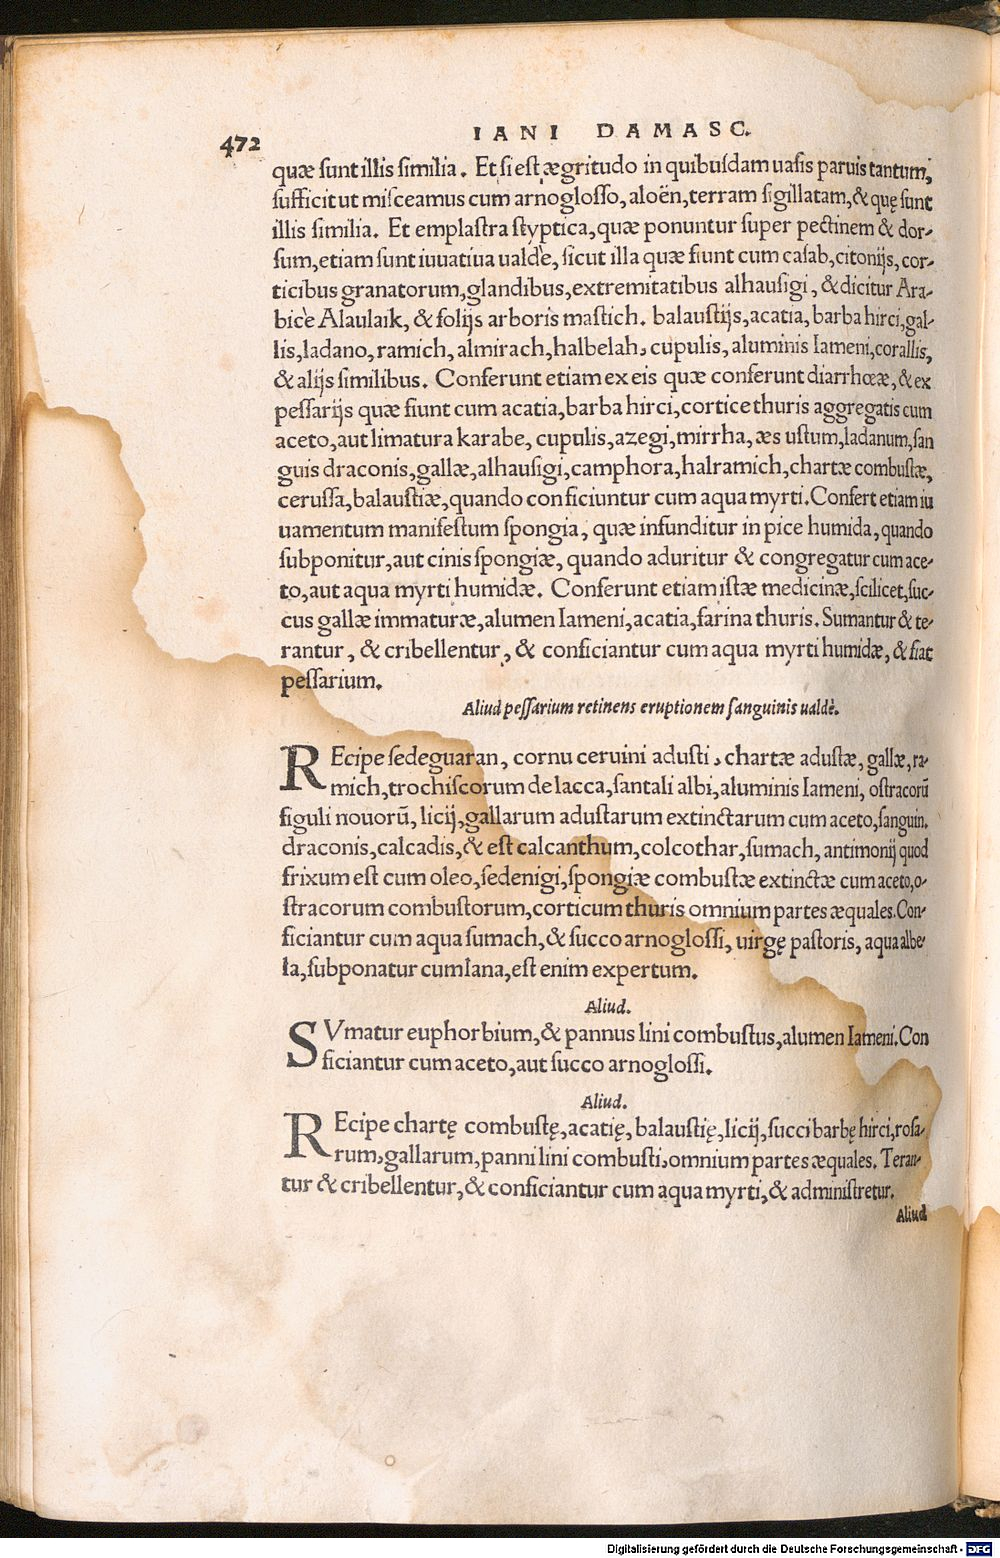 472
IANI DAMASC.
quæ sunt illis similia. Et si est ægritudo in quibusdam uasis paruis tantum,
sufficit ut misceamus cum arnoglosso, aloën, terram sigillatam, & quę sunt
illis similia. Et emplastra styptica, quæ ponuntur super pectinem & dor-
sum, etiam sunt iuuatiua ualdè, sicut illa quæ fiunt cum casab, citonijs, cor-
ticibus granatorum, glandibus, extremitatibus alhausigi, & dicitur Ara-
bicè Alaulaik, & folijs arboris mastich. balaustijs, acatia, barba hirci, gal-
lis, ladano, ramich, almirach, halbelah, cupulis, aluminis Iameni, corallis,
& alijs similibus. Conferunt etiam ex eis quæ conferunt diarrhœæ, & ex
pessarijs quæ fiunt cum acatia, barba hirci, cortice thuris aggregatis cum
aceto, aut limatura karabe, cupulis, azegi, mirrha, æs ustum, ladanum, san
guis draconis, gallæ, alhausigi, camphora, halramich, chartæ combustæ,
cerussa, balaustiæ, quando conficiuntur cum aqua myrti. Confert etiam iu
uamentum manifestum spongia, quæ infunditur in pice humida, quando
subponitur, aut cinis spongiæ, quando aduritur & congregatur cum ace-
to, aut aqua myrti humidæ. Conferunt etiam istæ medicinæ, scilicet, suc-
cus gallæ immaturæ, alumen Iameni, acatia, farina thuris. Sumantur & te-
rantur, & cribellentur, & conficiantur cum aqua myrti humidæ, & fiat
pessarium.
Aliud pessarium retinens eruptionem sanguinis ualdè.
REcipe sedeguaran, cornu ceruini adusti, chartæ adustæ, gallæ, ra-
mich, trochiscorum de lacca, santali albi, aluminis Iameni, ostracorũ
figuli nouorũ, licij, gallarum adustarum extinctarum cum aceto, sanguin.
draconis, calcadis, & est calcanthum, colcothar, sumach, antimonij quod
frixum est cum oleo, sedenigi, spongiæ combustæ extinctæ cum aceto, o-
stracorum combustorum, corticum thuris omnium partes æquales. Con-
ficiantur cum aqua sumach, & succo arnoglossi, uirgę pastoris, aqua albe-
la, subponatur cum lana, est enim expertum.
Aliud.
SVmatur euphorbium, & pannus lini combustus, alumen Iameni. Con
ficiantur cum aceto, aut succo arnoglossi.
Aliud.
REcipe chartę combustę, acatię, balaustię, licij, succi barbę hirci, rosa-
rum, gallarum, panni lini combusti, omnium partes æquales. Teran-
tur & cribellentur, & conficiantur cum aqua myrti, & administretur.
Aliud
Digitalisierung gefördert durch die Deutsche Forschungsgemeinschaft - DFG